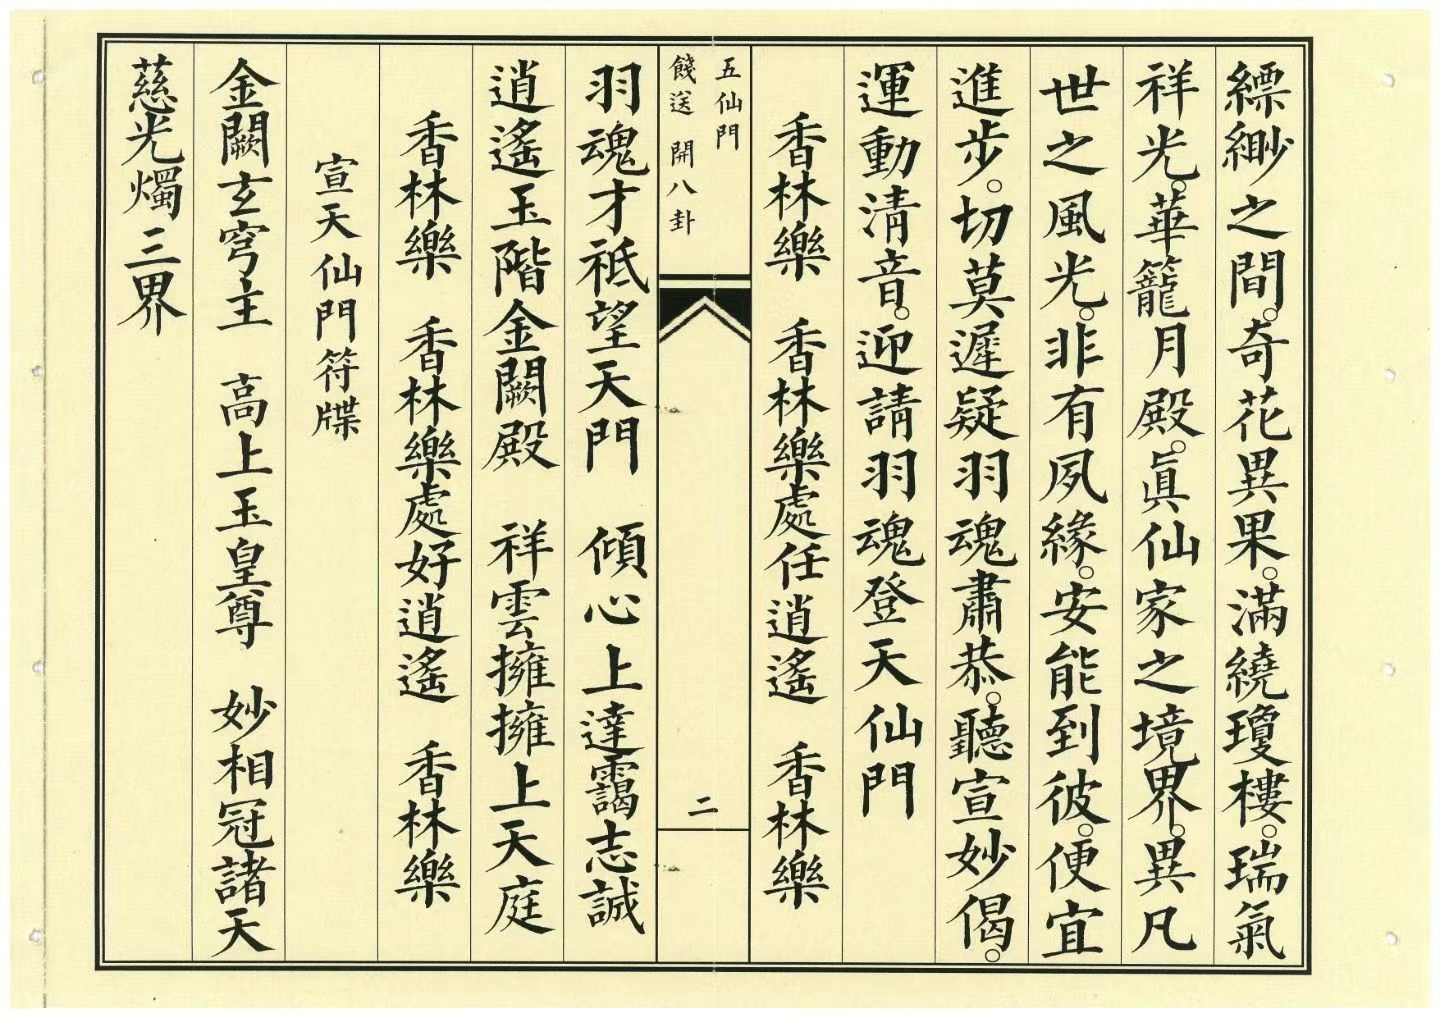 縹緲之間。奇花異果。滿繞瓊樓。瑞氣
祥光。華籠月殿。眞仙家之境界。異凡
世之風光。非有夙緣。安能到彼。便宜
進步。切莫遲疑羽魂肅恭。聽宣妙偈。
運動清音。迎請羽魂登天仙門
香林樂　香林樂處任逍遙　香林樂
五仙門
餞送　開八卦
二
羽魂才祗望天門　傾心上達靄志誠
逍遙玉階金闕殿　祥雲擁擁上天庭
香林樂　香林樂處好逍遙　香林樂
宣天仙門符牒
金闕玄穹主　高上玉皇尊　妙相冠諸天
慈光燭三界